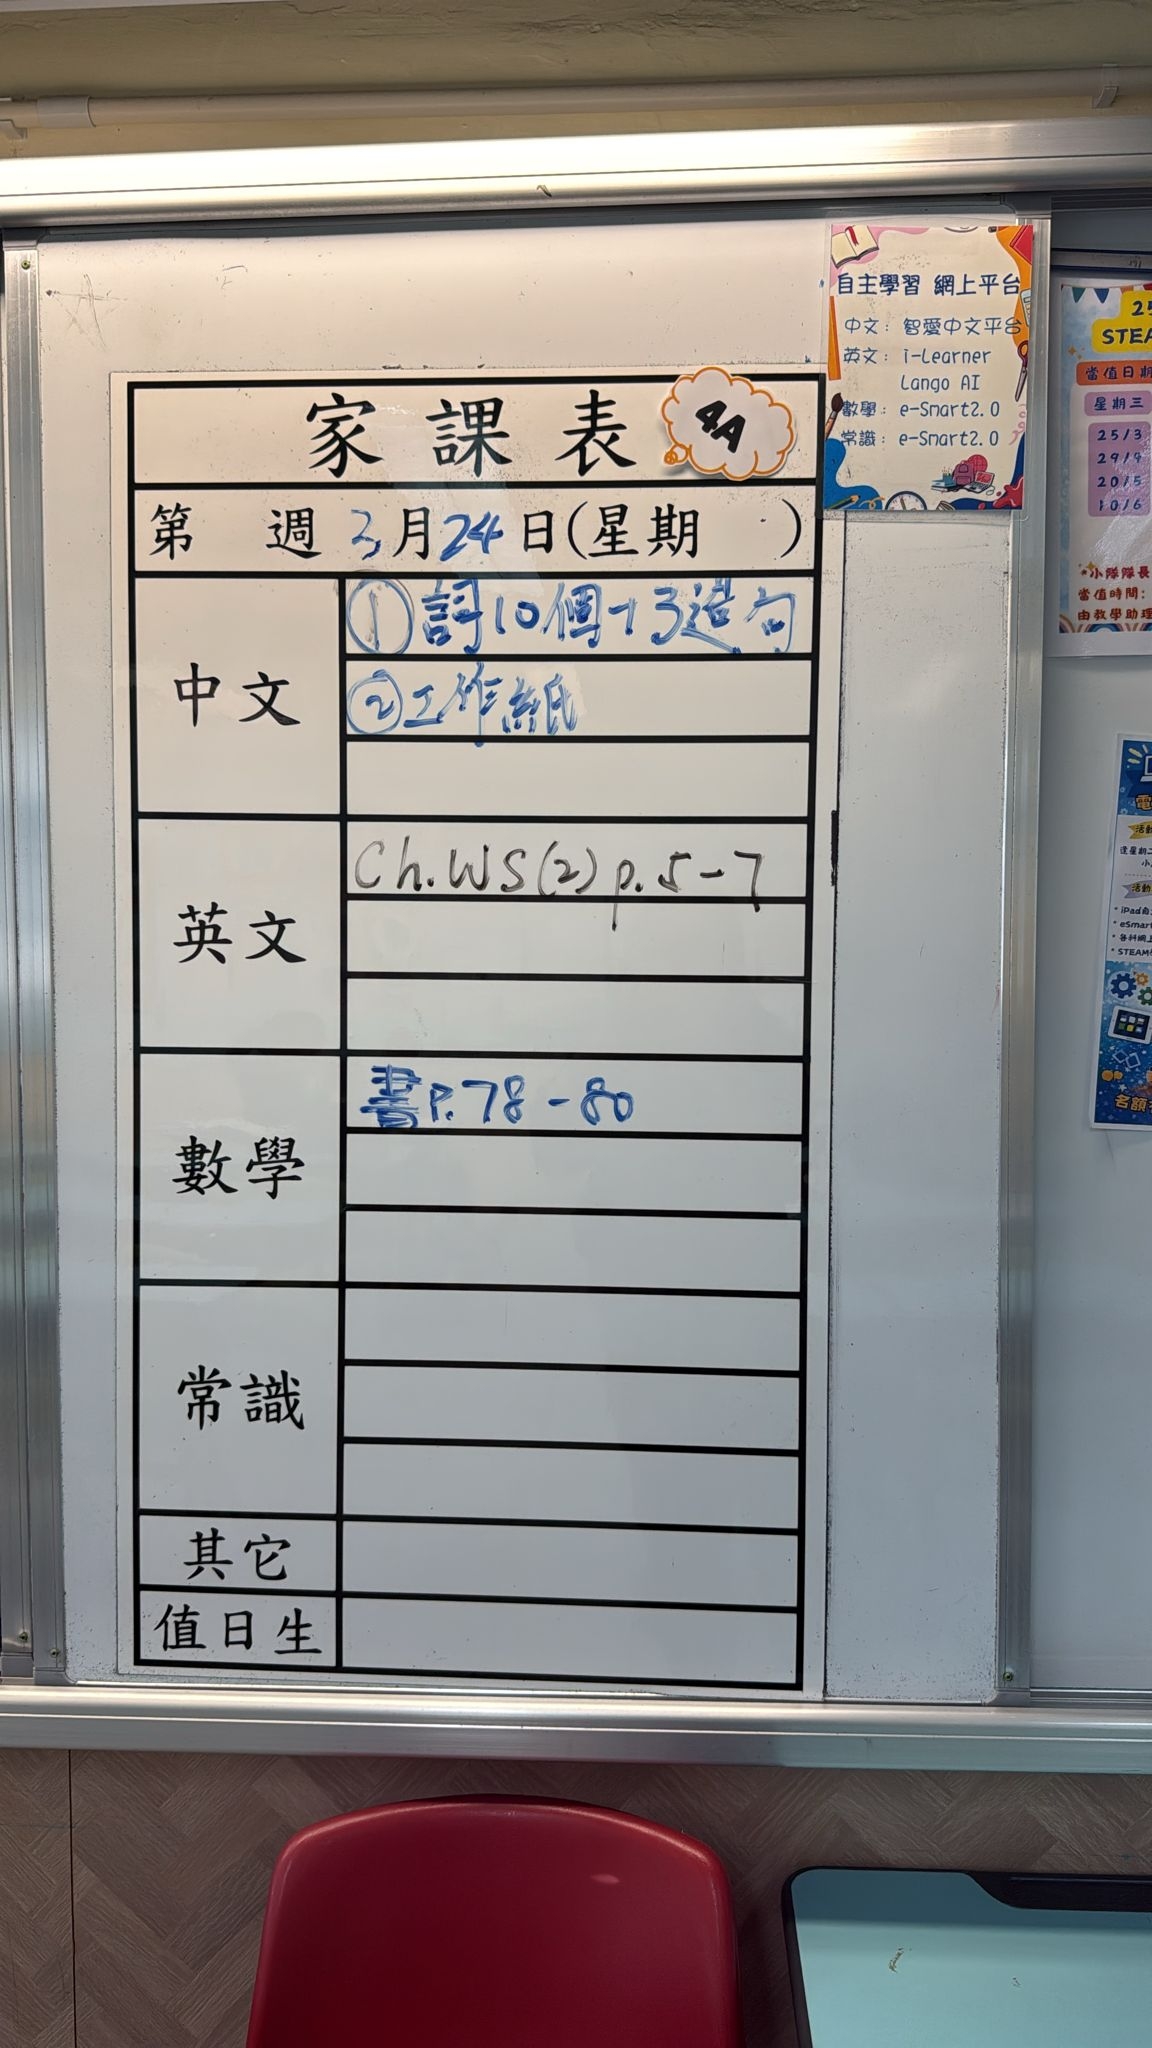 自主學習 網上平台
中文：智愛中文平台
英文：i-Learner
Lango AI
數學：e-Smart2.0
常識：e-Smart2.0
家課表 4A
第 週 3月24日(星期 )
中文
①詞10個+3造句
②工作紙
英文
Ch.WS(2) p.5-7
數學
書P.78-80
常識
其它
值日生
STEA
當值日期
星期三
25/3
29/4
20/5
10/6
小隊隊長
當值時間：
由教學助理
逢星期二
iPad自
eSmart
各科網上
STEAM
名額